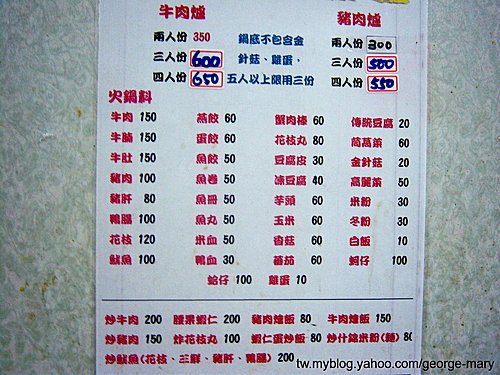 牛肉爐 豬肉爐
兩人份 350 鍋底不包含金 兩人份 300
三人份 600 針菇、雞蛋, 三人份 500
四人份 650 五人以上限用三份 四人份 550
火鍋料
牛肉 150 燕餃 60 蟹肉棒 60 傳統豆腐 20
牛腩 150 蛋餃 60 花枝丸 80 茼萵菜 60
牛肚 150 魚餃 50 豆腐皮 30 金針菇 20
豬肉 100 魚卷 50 凍豆腐 40 高麗菜 50
豬肝 80 魚冊 50 芋頭 60 米粉 30
鴨腸 100 魚丸 50 玉米 60 冬粉 30
花枝 120 米血 50 香菇 60 白飯 10
魷魚 100 鴨血 30 蕃茄 60 蚵仔 100
蛤仔 100 雞蛋 10
炒牛肉 200 腰果蝦仁 200 豬肉燴飯 80 牛肉燴飯 150
炒豬肉 150 炸花枝丸 100 蝦仁蛋炒飯 80 炒什錦米粉(麵) 80
炒魷魚(花枝、三鮮、豬肝、鴨腸) 200
tw.myblog.yahoo.com/george-mary